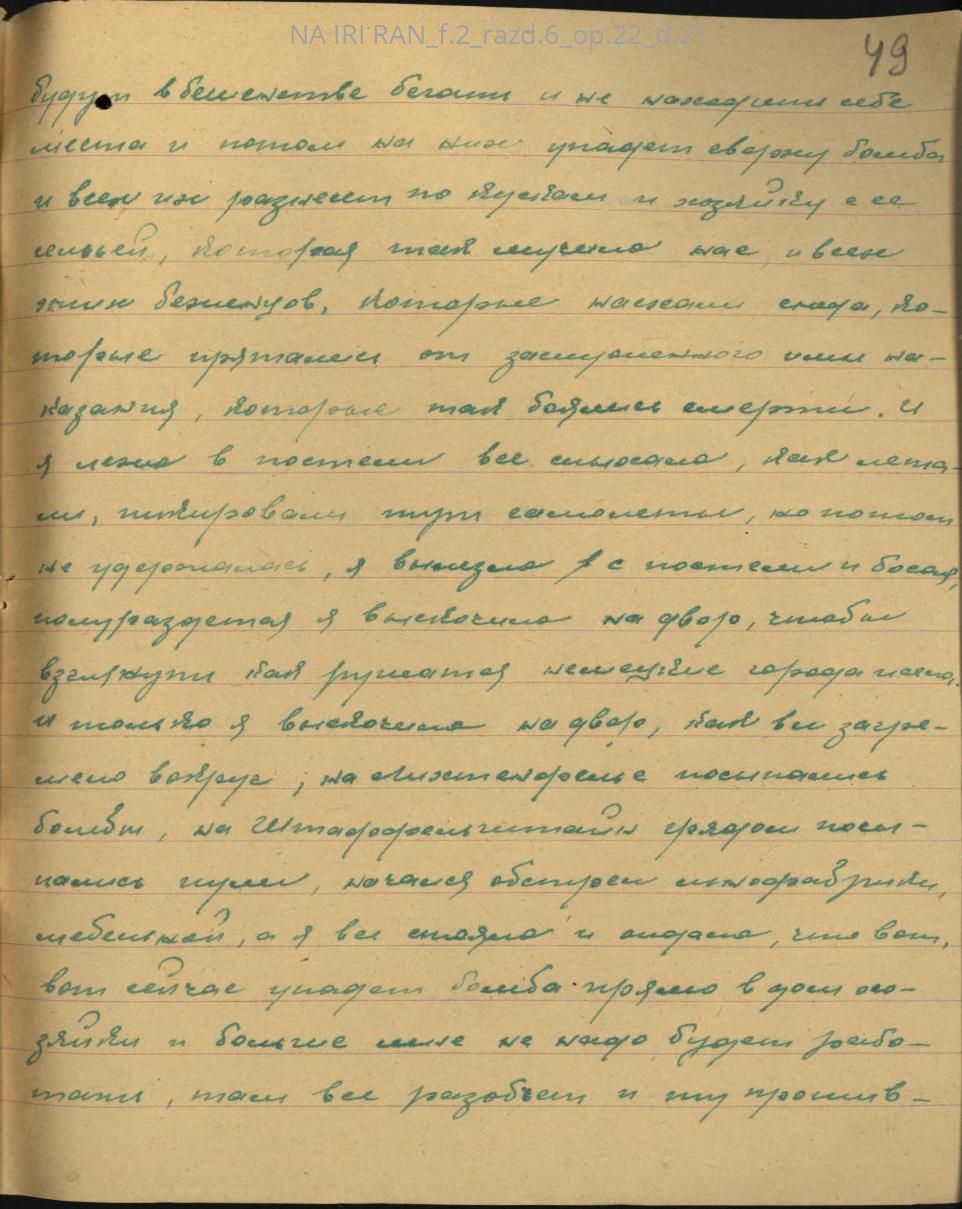 NA IRI RAN_f.2_razd.6_op.22_d.21
49
будут в бешенстве бегать и не находить себе
места и потом на них упадет сверху бомба
и всех их разнесет по кускам и хозяйку с ее
семьей, которая так мучила нас, и всех
этих беженцов, которые наехали сюда, ко-
торые прятались от заслуженного ими на-
казания, которые так боялись смерти. И
я лежа в постели все слыхала, как лета-
ли, пикировали тут самолеты, но потом
не удержалась, я вылезла с постели и босая,
полураздетая я выскочила на двор, чтобы
взглянуть как рушатся немецкие города и села.
И только я выскочила на двор, как все загре-
мело вокруг, на Лихтенфельс посыпались
бомбы, на Штаффельштайн градом посы-
пались пули, начался обстрел льнофабрики,
мебельной, а я все стояла и ждала, что вот,
вот сейчас упадет бомба прямо в дом хо-
зяйки и больше мне не надо будет рабо-
тать, там все разобьет и ту против-